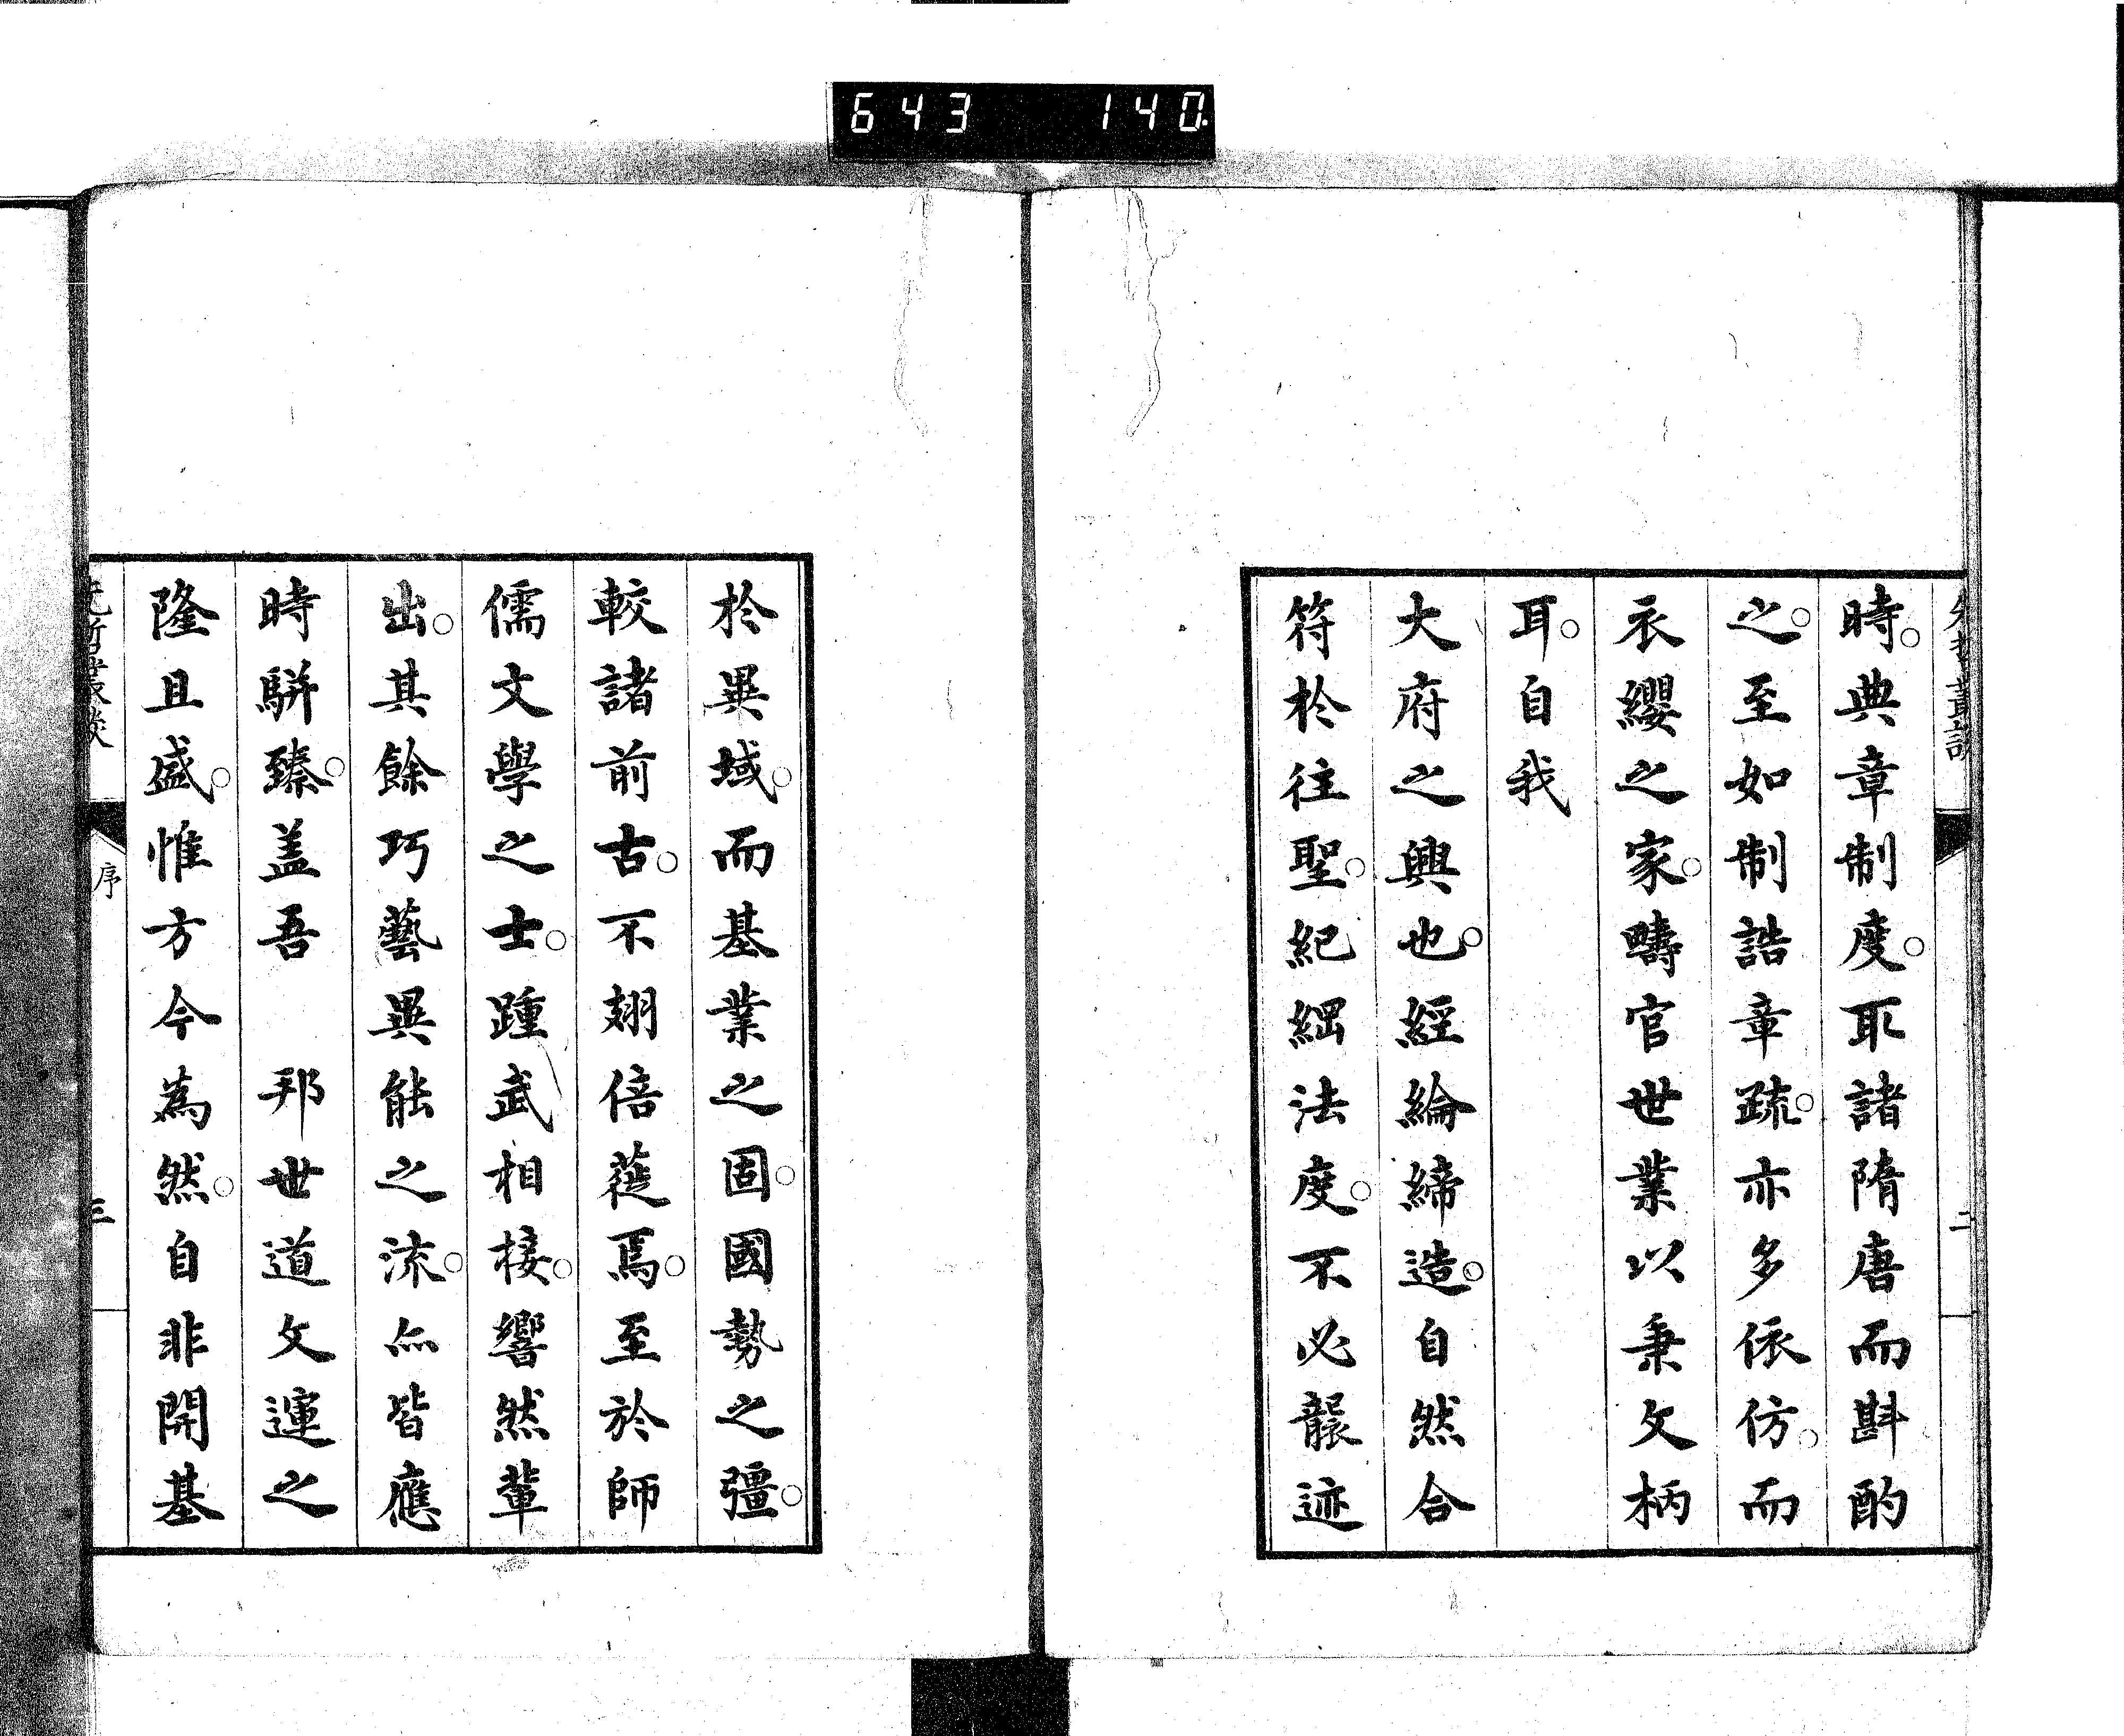 643 140
時。典章制度。取諸隋唐而斟酌
之。至如制誥章疏。亦多依仿。而
衣纓之家。疇官世業以秉文柄
耳。自我
大府之興也。經綸締造。自然合
符於往聖。紀綱法度。不必襲迹
二
於異域。而基業之固。國勢之彊。
較諸前古。不翅倍蓰焉。至於師
儒文學之士。踵武相接。響然輩
出。其餘巧藝異能之流。亦皆應
時駢臻。蓋吾 邦世道文運之
隆且盛。惟方今為然。自非開基
序
三